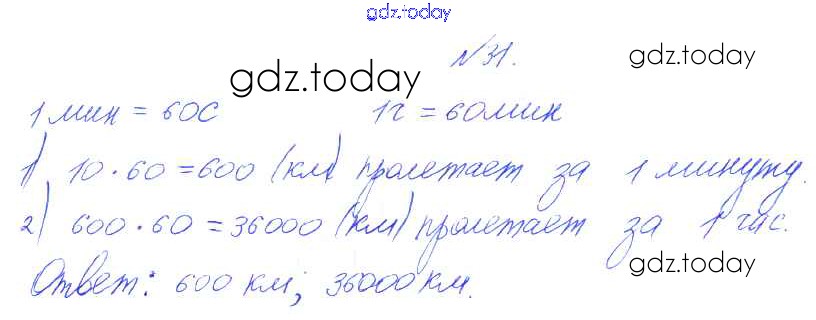 gdz.today
№31.
gdz.today
gdz.today
1 мин = 60с 1ч = 60мин
1) 10·60=600 (км) пролетает за 1 минуту.
2) 600·60=36000 (км) пролетает за 1 час.
gdz.today
Ответ: 600 км; 36000 км.